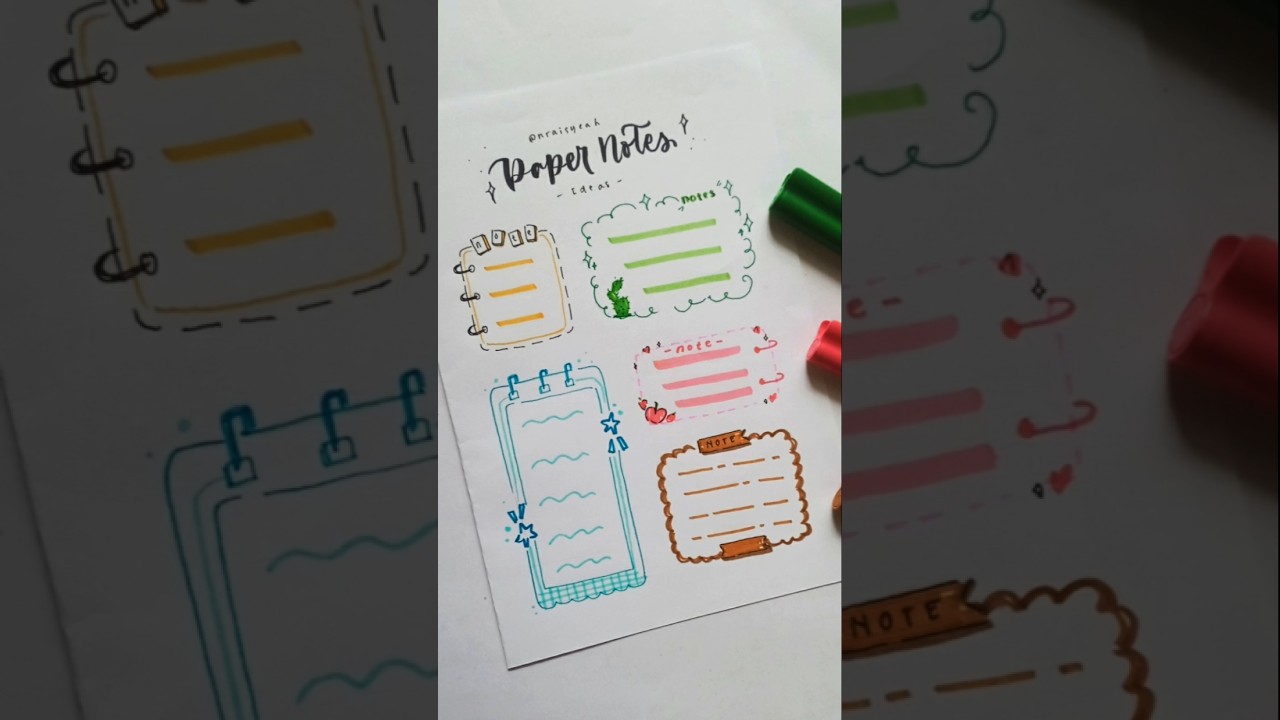 @nraisyeah
Paper Notes
- Ideas -
NOTE
"notes"
-note-
NOTE